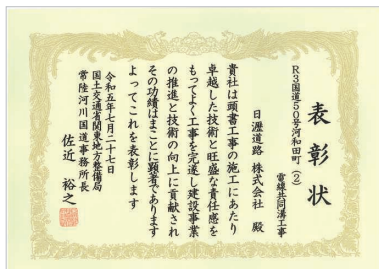 表彰状
R3国道50号河和田町(2)
電線共同溝工事
日瀝道路 株式会社 殿
貴社は頭書工事の施工にあたり
卓越した技術と旺盛な責任感を
もってよく工事を完遂し建設事業
の推進と技術の向上に貢献され
その功績はまことに顕著であります
よってこれを表彰します
令和五年七月二十七日
国土交通省関東地方整備局
常陸河川国道事務所長
佐近 裕之